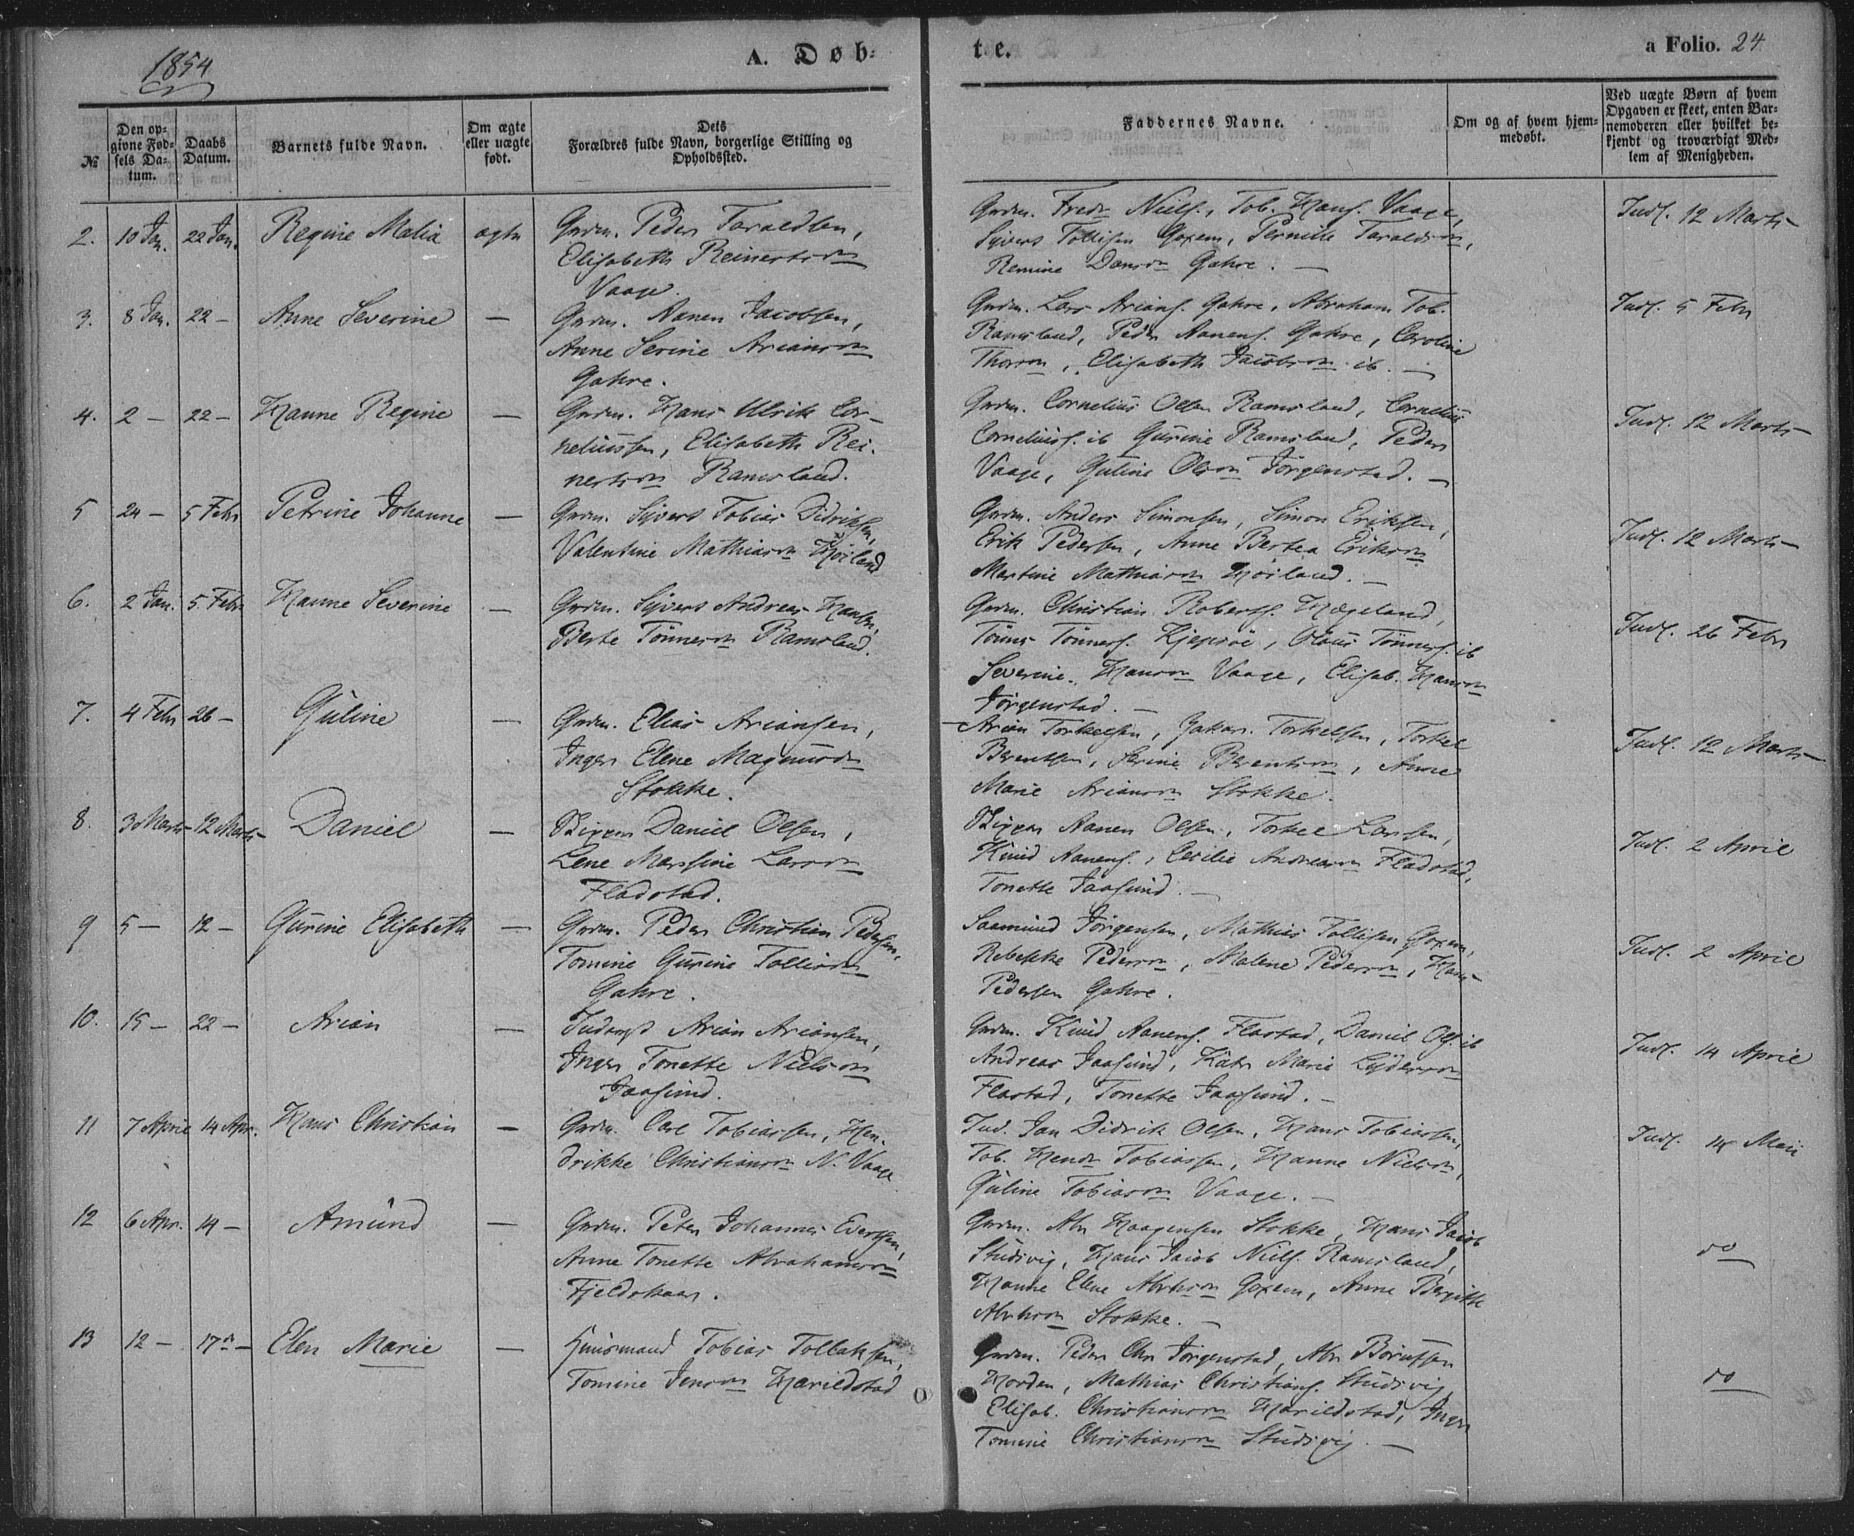 1854
A. Døb-
t.e.
a Folio. 24
№
Den opgivne Fødsels Datum.
Daabs Datum.
Barnets fulde Navn.
Om ægte eller uægte født.
Dets Forældres fulde Navn, borgerlige Stilling og Opholdssted.
Faddernes Navne.
Om og af hvem hjemmedøbt.
Ved uægte Børn af hvem Opgaven er skeet, enten Barnemoderen eller hvilket bekjendt og troværdigt Medlem af Menigheden.
2. 10 Jan. 22 Jan. Regine Malia ægte
Grdm. Peder Taraldsen,
Elisabeth Reinertsdn
Vaage.
Grdm. Fredr Niels., Tob. Hans. Vaage,
Syvert Tollisen Goxem, Pernille Taraldsdn,
Remine Dansdn Gahre. —
Indl. 12 Marts
3. 8 Jan. 22 — Anne Severine —
Grdm. Aanen Jacobsen,
Anne Serine Ariansdn
Gahre.
Grdm. Lars Arians. Gahre, Abraham Tob.
Ramsland, Peder Aanens. Gahre, Caroline
Thorsdn, Elisabeth Jacobsdn ib. —
Indl. 5 Febr
4. 2 — 22 — Hanne Regine —
Grdm. Hans Ulrik Cor-
neliussen, Elisabeth Rei-
nertsdn Ramsland.
Grdm. Cornelius Olsen Ramsland, Cornelius
Corneliuss. ib Gurine Ramsland, Peder
Vaage, Guline Olsdn Jørgenstad. —
Indl. 12 Marts
5 24 — 5 Febr Petrine Johanne —
Grdm. Syvert Tobias Didriksen,
Valentine Mathiasdn Høiland
Grdm. Anders Simonsen, Simon Eriksen,
Erik Pedersen, Anne Bertea Eriksdn
Martine Mathiasdn Høiland. —
Indl. 12 Marts
6. 2 Jan. 5 Febr Hanne Severine —
Grdm. Syvert Andreas Hansen,
Berte Tønnesdn Ramsland.
Grdm. Christian Roberts. Hægeland,
Tønnes Tønness. Kjepsøe, Olaus Tønness. ib
Severine Hansdn Vaage, Elisab. Hansdn
Jørgenstad. —
Indl. 26 Febr
7. 4 Febr 26 — Guline —
Grdm. Elias Ariansen,
Inger Elene Magnusdn
Stokke.
Arian Torkelsen, Zakar. Torkelsen, Torkel
Berentsen, Serine Berentsdn, Anne
Marie Ariansdn Stokke.
Indl. 12 Marts
8. 3 Marts 12 Marts Daniel —
Skipper Daniel Olsen,
Lene Marsine Larsdn
Fladstad.
Skipper Aanen Olsen, Torkel Larsen,
Knud Aanens., Cecilie Andreasdn Fladstad,
Tonette Jaasund. —
Indl. 2 April
9 5 — 12 — Gurine Elisabeth —
Grdm. Peder Christian Pedersen,
Tomine Gurine Tollisdn
Gahre.
Saamund Jørgensen, Mathias Tollisen Goxem,
Rebekke Pedersdn, Malene Pedersdn, Hans
Pedersen Gahre.
Indl. 2 April
10. 15 — 22 — Arian —
Inderst Arian Ariansen,
Inger Tonette Nielsdn
Jaasund.
Grdm. Knud Aanens. Flastad, Daniel Ols. ib
Andreas Jaasund, Kath Marie Lydersdn
Flastad, Tonette Jaasund. —
Indl. 14 April
11 7 April 14 Apr. Hans Christian —
Grdm. Carl Tobiassen, Hen-
drikke Christiansdn N. Vaage
Ind. Jan Didrik Olsen, Hans Tobiassen,
Tob. Hendr Tobiassen, Hanne Nielsdn,
Guline Tobiasdn Vaage. —
Indl. 14 Mai
12 6 Apr. 14 — Amund —
Grdm. Peter Johannes Evertsen,
Anne Tonette Abrahamsdn
Fjeldskaar.
Grdm. Abr Haagensen Stokke, Hans Jacob
Studsvig, Hans Jacob Niels. Ramsland,
Hanne Elene Abrhsdn Goxem, Anne Bergitte
Abrhsdn Stokke. —
do
13 12 — 17de — Elen Marie —
Huusmand Tobias Tollaksen,
Tomine Jensdn Harildstad
Grdm. Peder Chr Jørgenstad, Abr Børufsen
Horden, Mathias Christians. Studsvig
Elisab. Christiansdn Harildstad, Inger
Tomine Christiansdn Studsvig. —
do